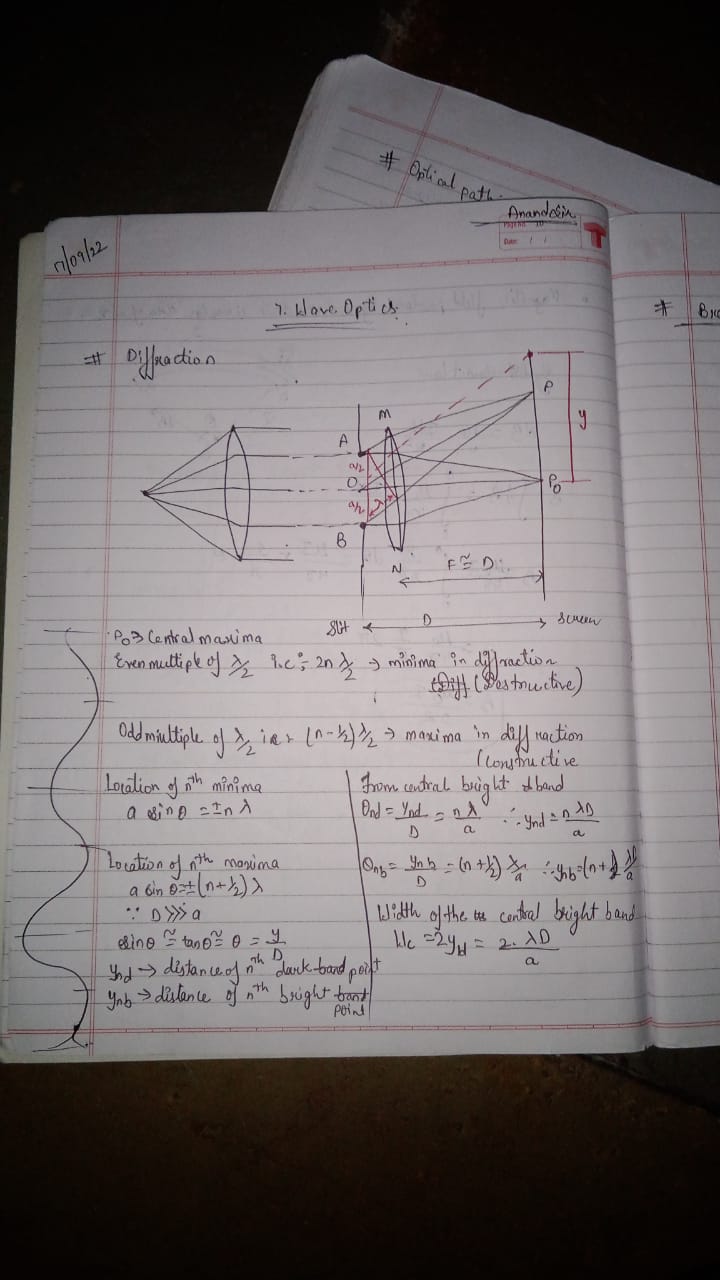 # Optical path.
Anandcin
Page no
Date: / /
17/09/22
7. Wave Optics.
# Diffraction
M
A
a/2
O
a/2
λ
B
N
P
y
P0
F ≅ D
Slit
D
Screen
P0 ⇒ Central maxima
Even multiple of λ/2 i.e ÷ 2n λ/2 → minima in diffraction
(Destructive)
Odd multiple of λ/2 i.e. (n-1/2) λ/2 → maxima in diffraction
(Constructive
Location of nth minima
a sin θ = ±n λ
Location of nth maxima
a sin θ = ±(n+1/2) λ
∵ D >>> a
sinθ ≅ tanθ ≅ θ = y/D
ynd → distance of nth dark band point
ynb → distance of nth bright band
point
From central bright band
θnd = ynd/D = nλ/a ∴ ynd = nλD/a
θnb = ynb/D = (n+1/2) λ/a ∴ ynb = (n+1/2) λD/a
Width of the central bright band
Wc = 2yd = 2. λD/a
#